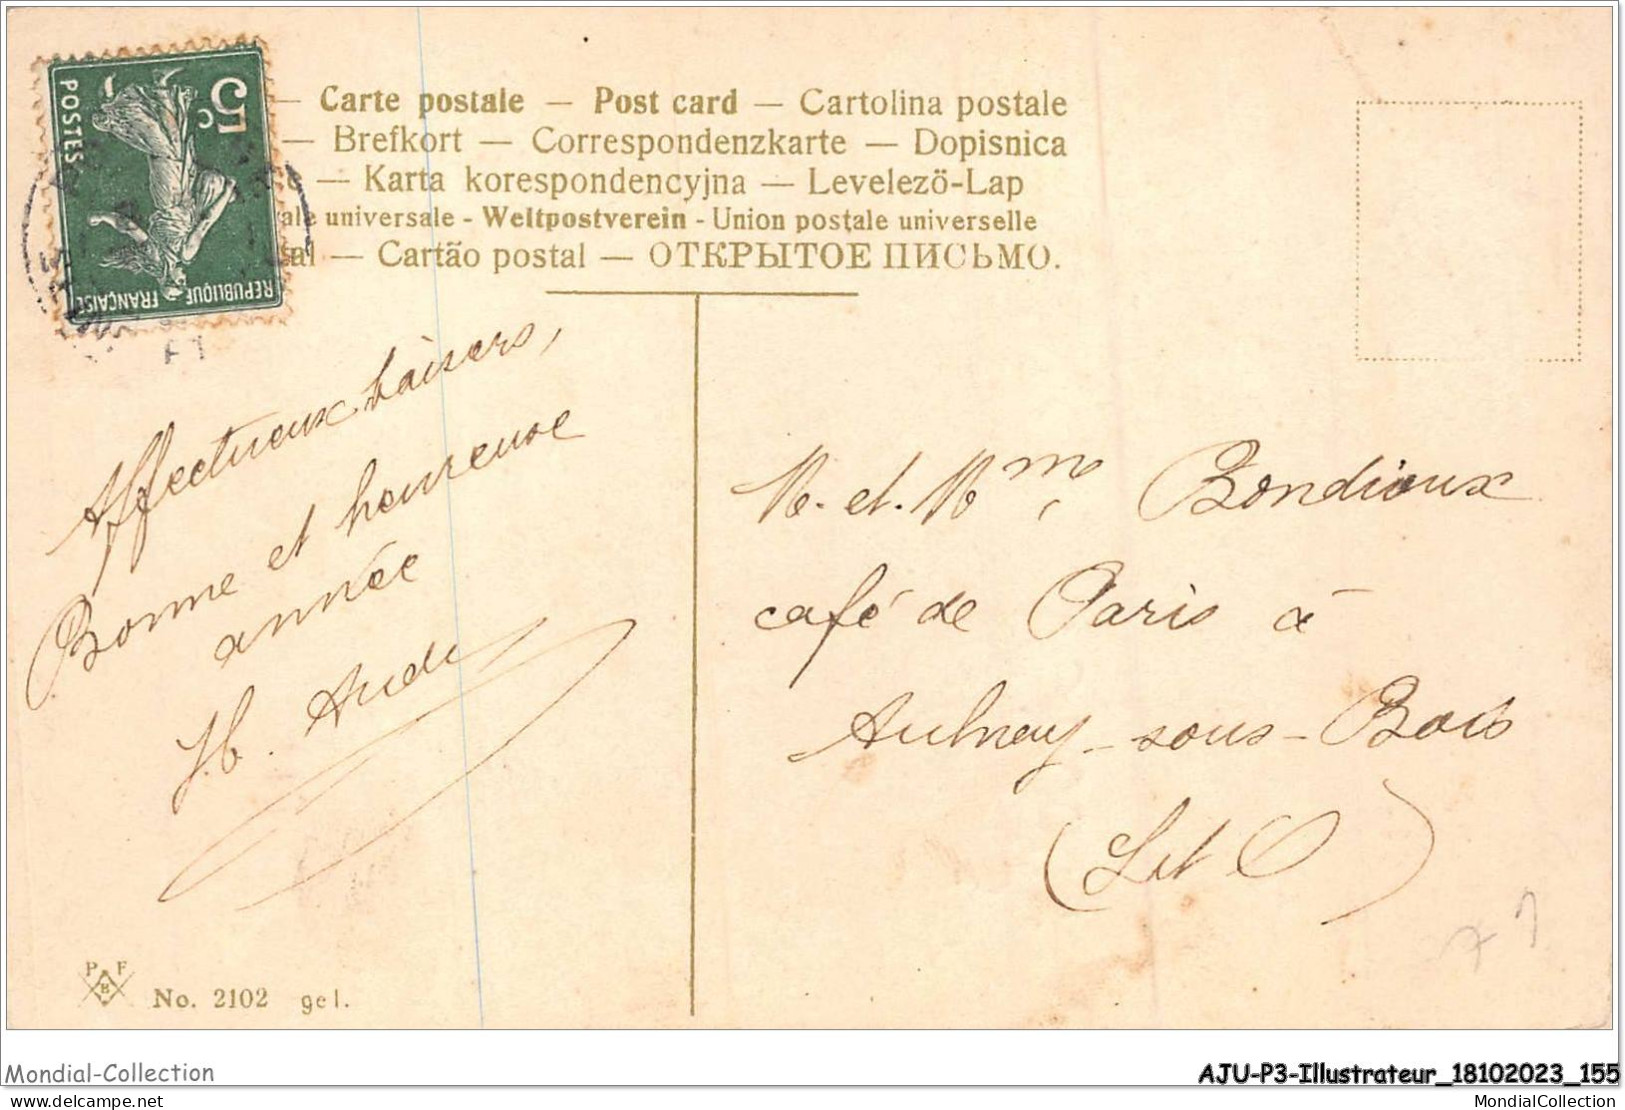 5c
POSTES
REPUBLIQUE FRANÇAISE
— Carte postale — Post card — Cartolina postale
— Brefkort — Correspondenzkarte — Dopisnica
— Karta korespondencyjna — Levelezö-Lap
ale universale - Weltpostverein - Union postale universelle
al — Cartão postal — ОТКРЫТОЕ ПИСЬМО.
Affectueux baisers,
Bonne et heureuse
année
H.
M. et. Mme. Bondioux
café de Paris à
Aulnay-sous-Bois
(S et O)
P F
B
No. 2102 gel.
Mondial-Collection
AJU-P3-Illustrateur_18102023_155
delcampe.net
MondialCollection